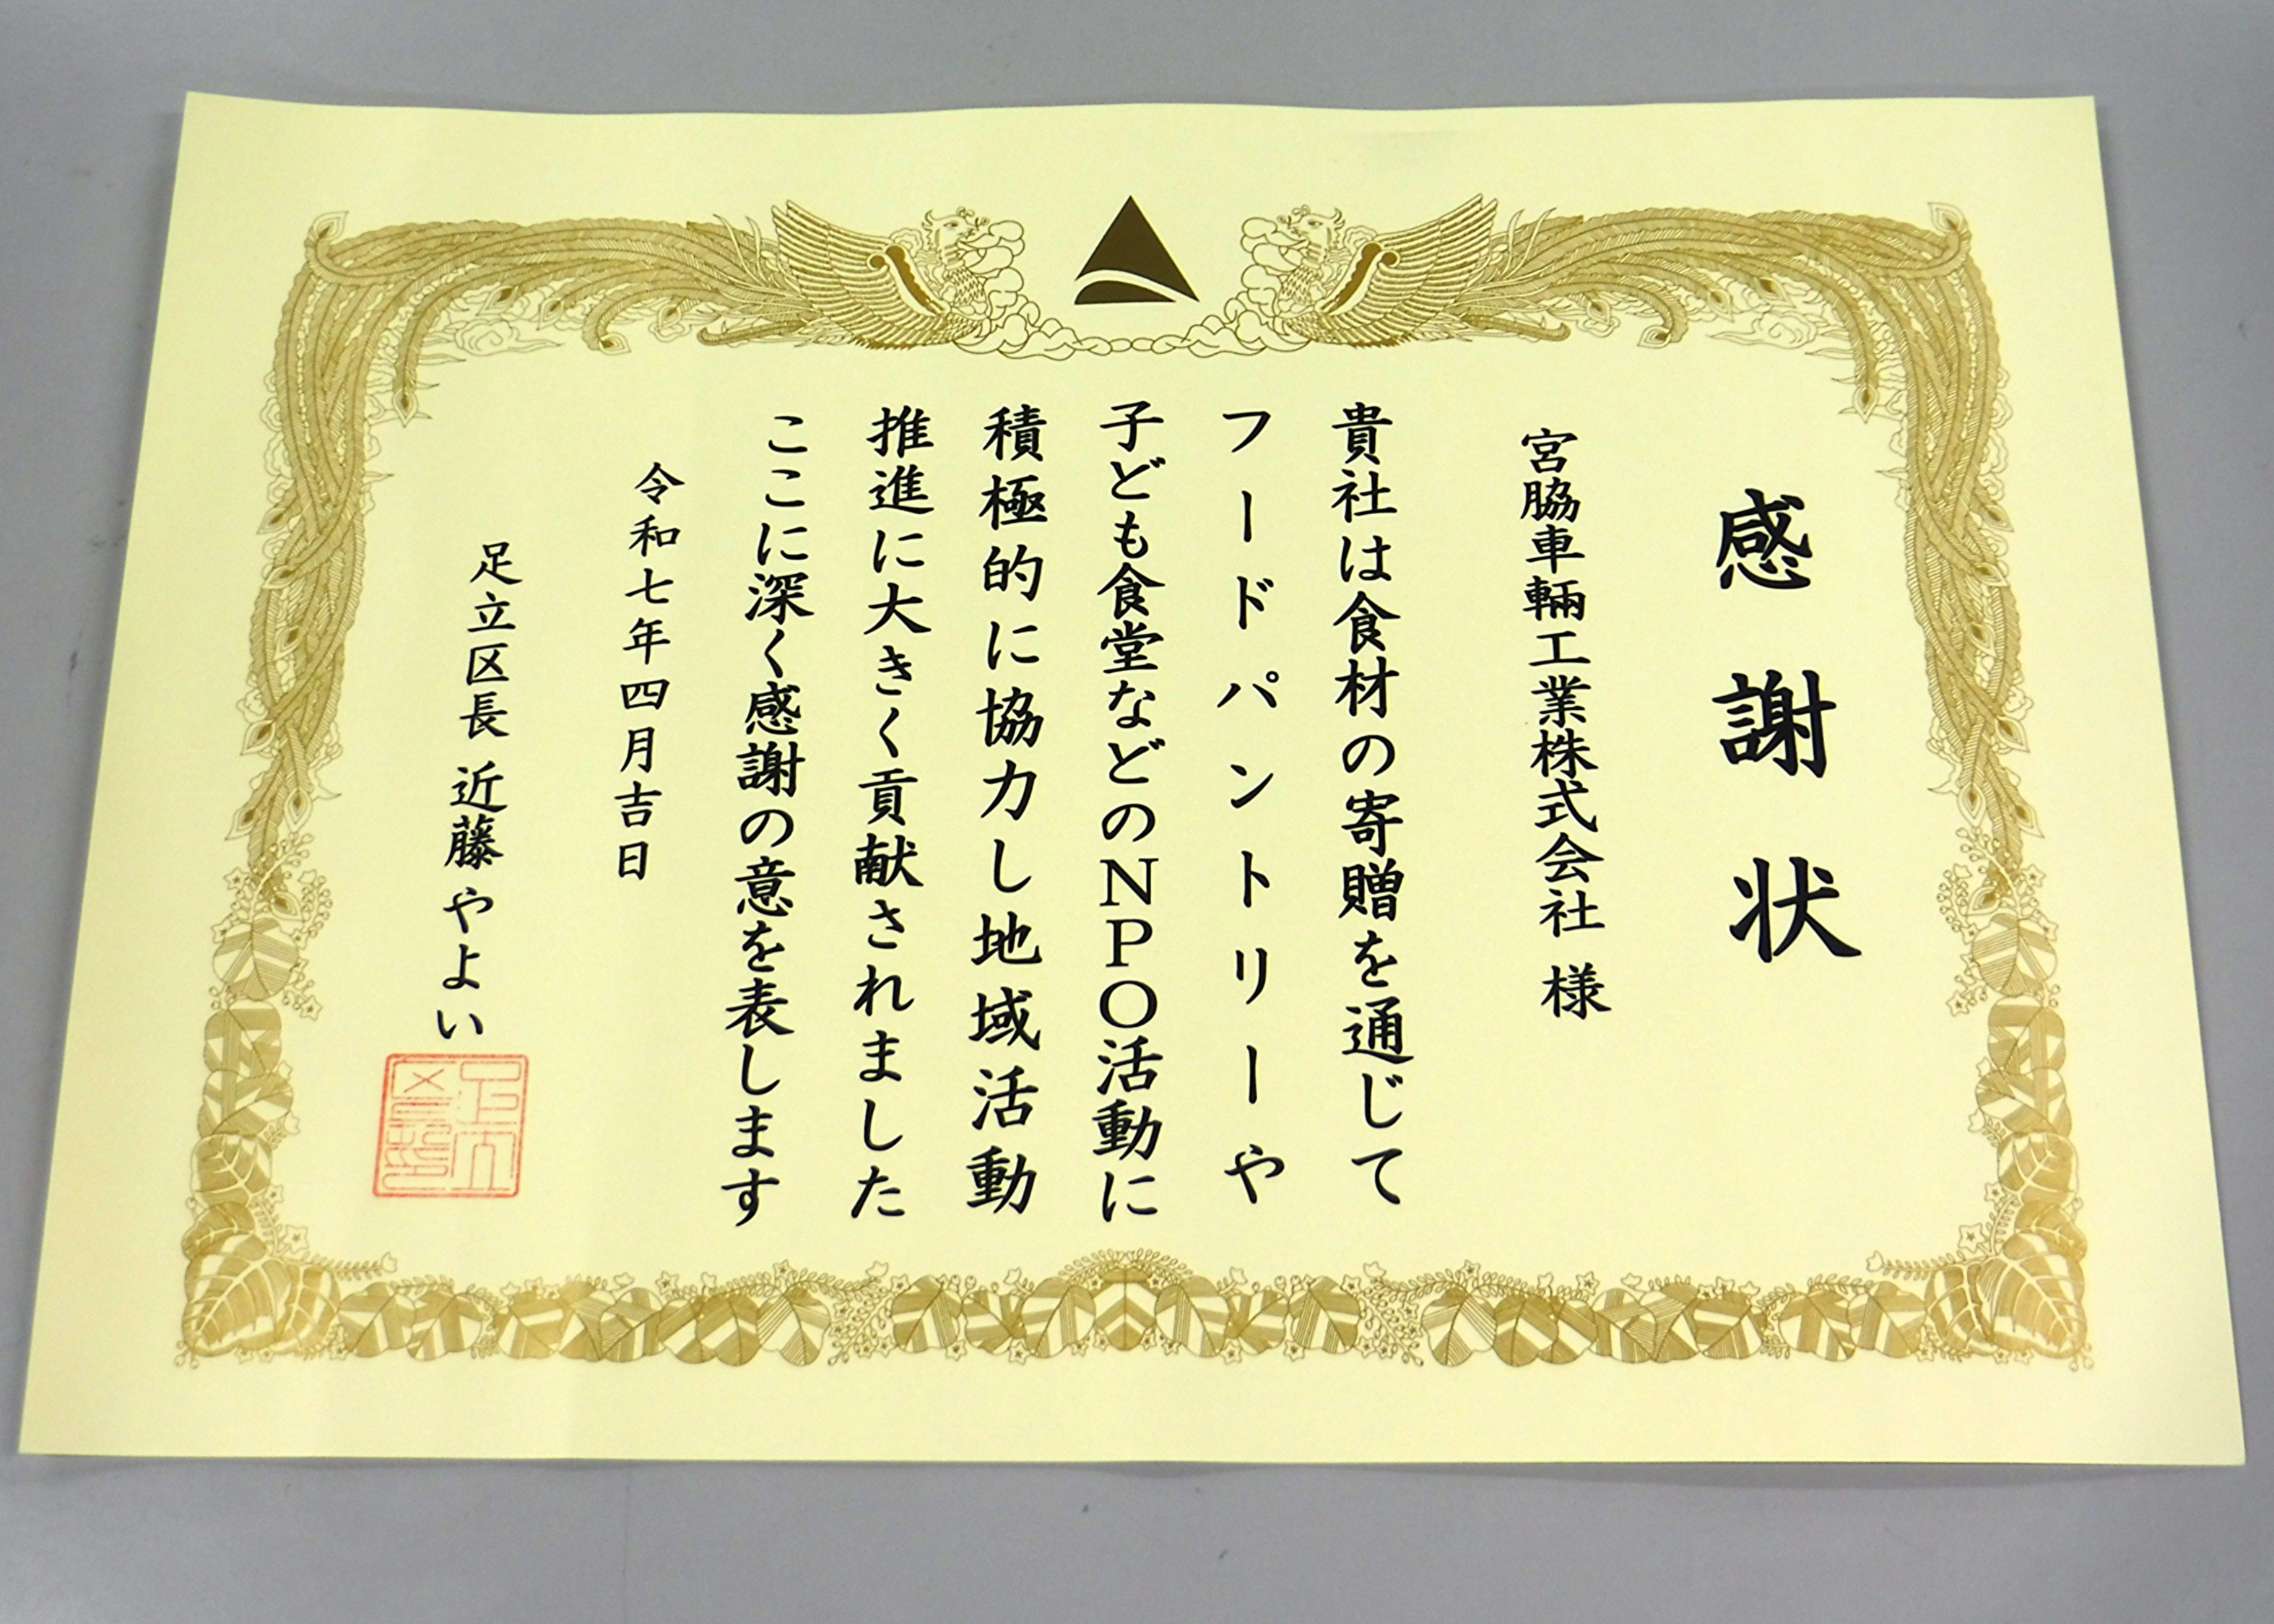 感謝状
宮脇車輛工業株式会社 様
貴社は食材の寄贈を通じて
フードパントリーや
子ども食堂などのNPO活動に
積極的に協力し地域活動
推進に大きく貢献されました
ここに深く感謝の意を表します
令和七年四月吉日
足立区長 近藤やよい